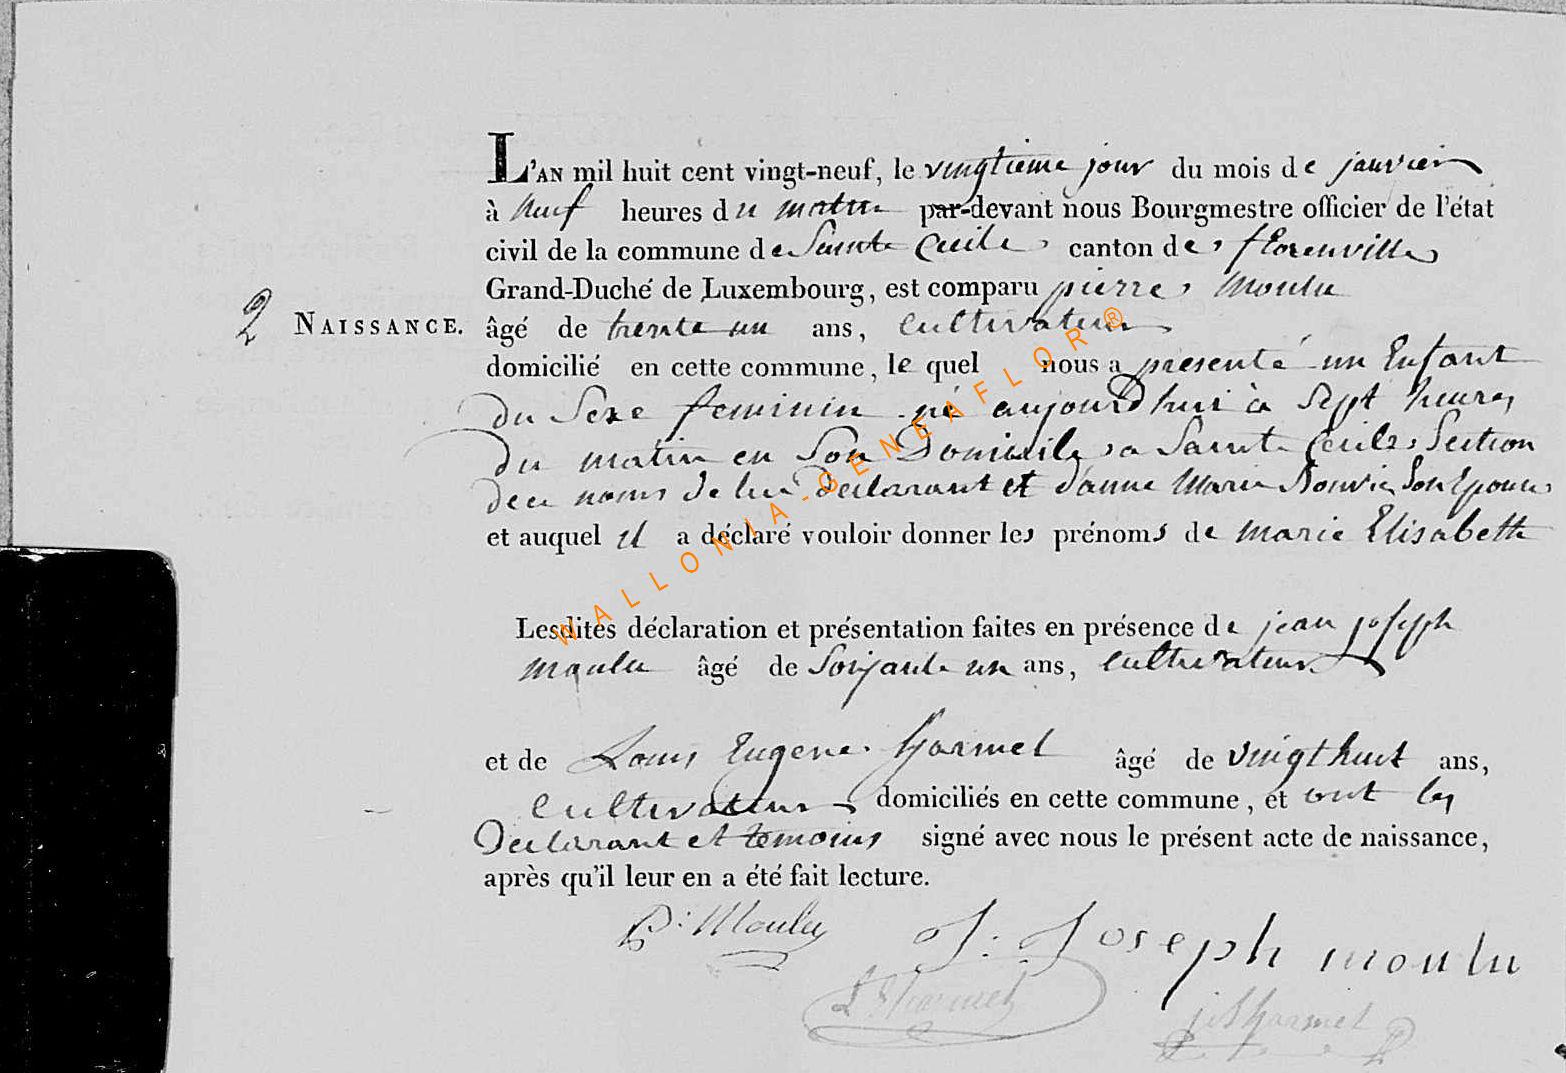 L'AN mil huit cent vingt-neuf, le vingtieme jour du mois de janvier
à neuf heures du matin par-devant nous Bourgmestre officier de l'état
civil de la commune de Sainte Cecile canton de florenville
Grand-Duché de Luxembourg, est comparu pierre Moulu
2 NAISSANCE. âgé de trente un ans, cultivateur
domicilié en cette commune, le quel nous a presenté un Enfant
du Sexe feminin né aujourd'hui à Sept heures
du matin en Son Domicile a Sainte Cecile Section
nom de lui declarant et d'anne Marie Son Epouse
et auquel il a déclaré vouloir donner les prénoms de Marie Elisabeth
Lesdites déclaration et présentation faites en présence de jean joseph
moulu âgé de Soixante un ans, cultivateur
et de Louis Eugene harmel âgé de vingt huit ans,
Cultivateur domiciliés en cette commune, et ont les
Declarant et temoins signé avec nous le présent acte de naissance,
après qu'il leur en a été fait lecture.
P: Moulu J: Joseph moulu
L E harmel
Harmel
WALLONIA-GENEAFLOR®